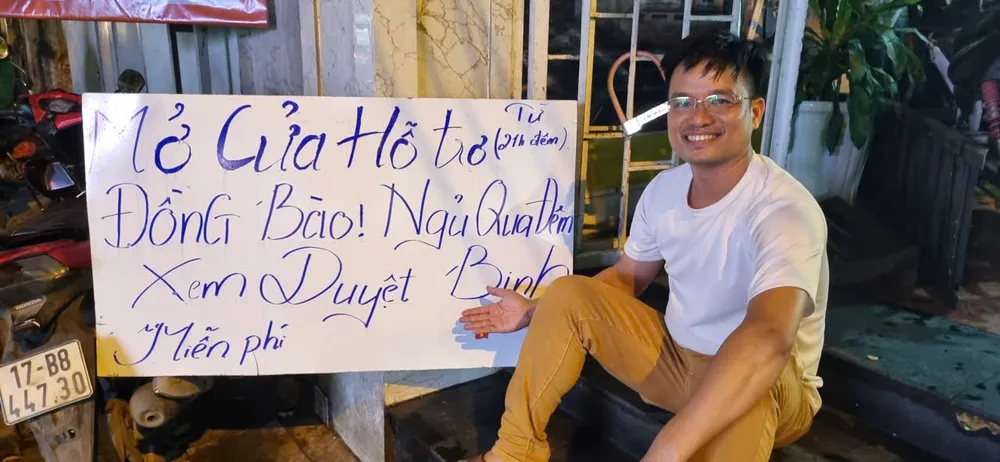 Mở Cửa Hỗ trợ Từ (21h đêm)
ĐỒNG Bào! Ngủ Qua Đêm
Xem Duyệt Binh
Miễn phí
17-B8
447.30
HONDA